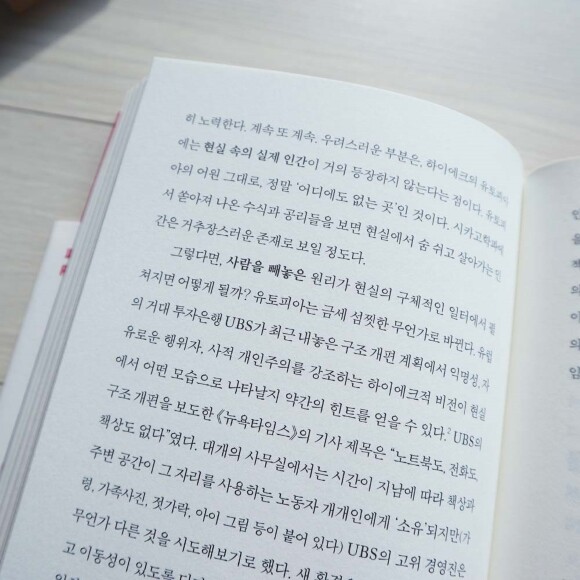 히 노력한다. 계속 또 계속. 우려스러운 부분은, 하이에크의 유토피아
에는 현실 속의 실제 인간이 거의 등장하지 않는다는 점이다. 유토피
아의 어원 그대로, 정말 '어디에도 없는 곳'인 것이다. 시카고학파에
서 쏟아져 나온 수식과 공리들을 보면 현실에서 숨 쉬고 살아가는 인
간은 거추장스러운 존재로 보일 정도다.
그렇다면, 사람을 빼놓은 원리가 현실의 구체적인 일터에서 펼
쳐지면 어떻게 될까? 유토피아는 금세 섬찟한 무언가로 바뀐다. 유럽
의 거대 투자은행 UBS가 최근 내놓은 구조 개편 계획에서 익명성, 자
유로운 행위자, 사적 개인주의를 강조하는 하이에크적 비전이 현실
에서 어떤 모습으로 나타날지 약간의 힌트를 얻을 수 있다.² UBS의
구조 개편을 보도한 《뉴욕타임스》의 기사 제목은 "노트북도, 전화도,
책상도 없다"였다. 대개의 사무실에서는 시간이 지남에 따라 책상과
주변 공간이 그 자리를 사용하는 노동자 개개인에게 '소유'되지만(가
령, 가족사진, 젓가락, 아이 그림 등이 붙어 있다) UBS의 고위 경영진은
무언가 다른 것을 시도해보기로 했다. 새 환경
고 이동성이 있도록